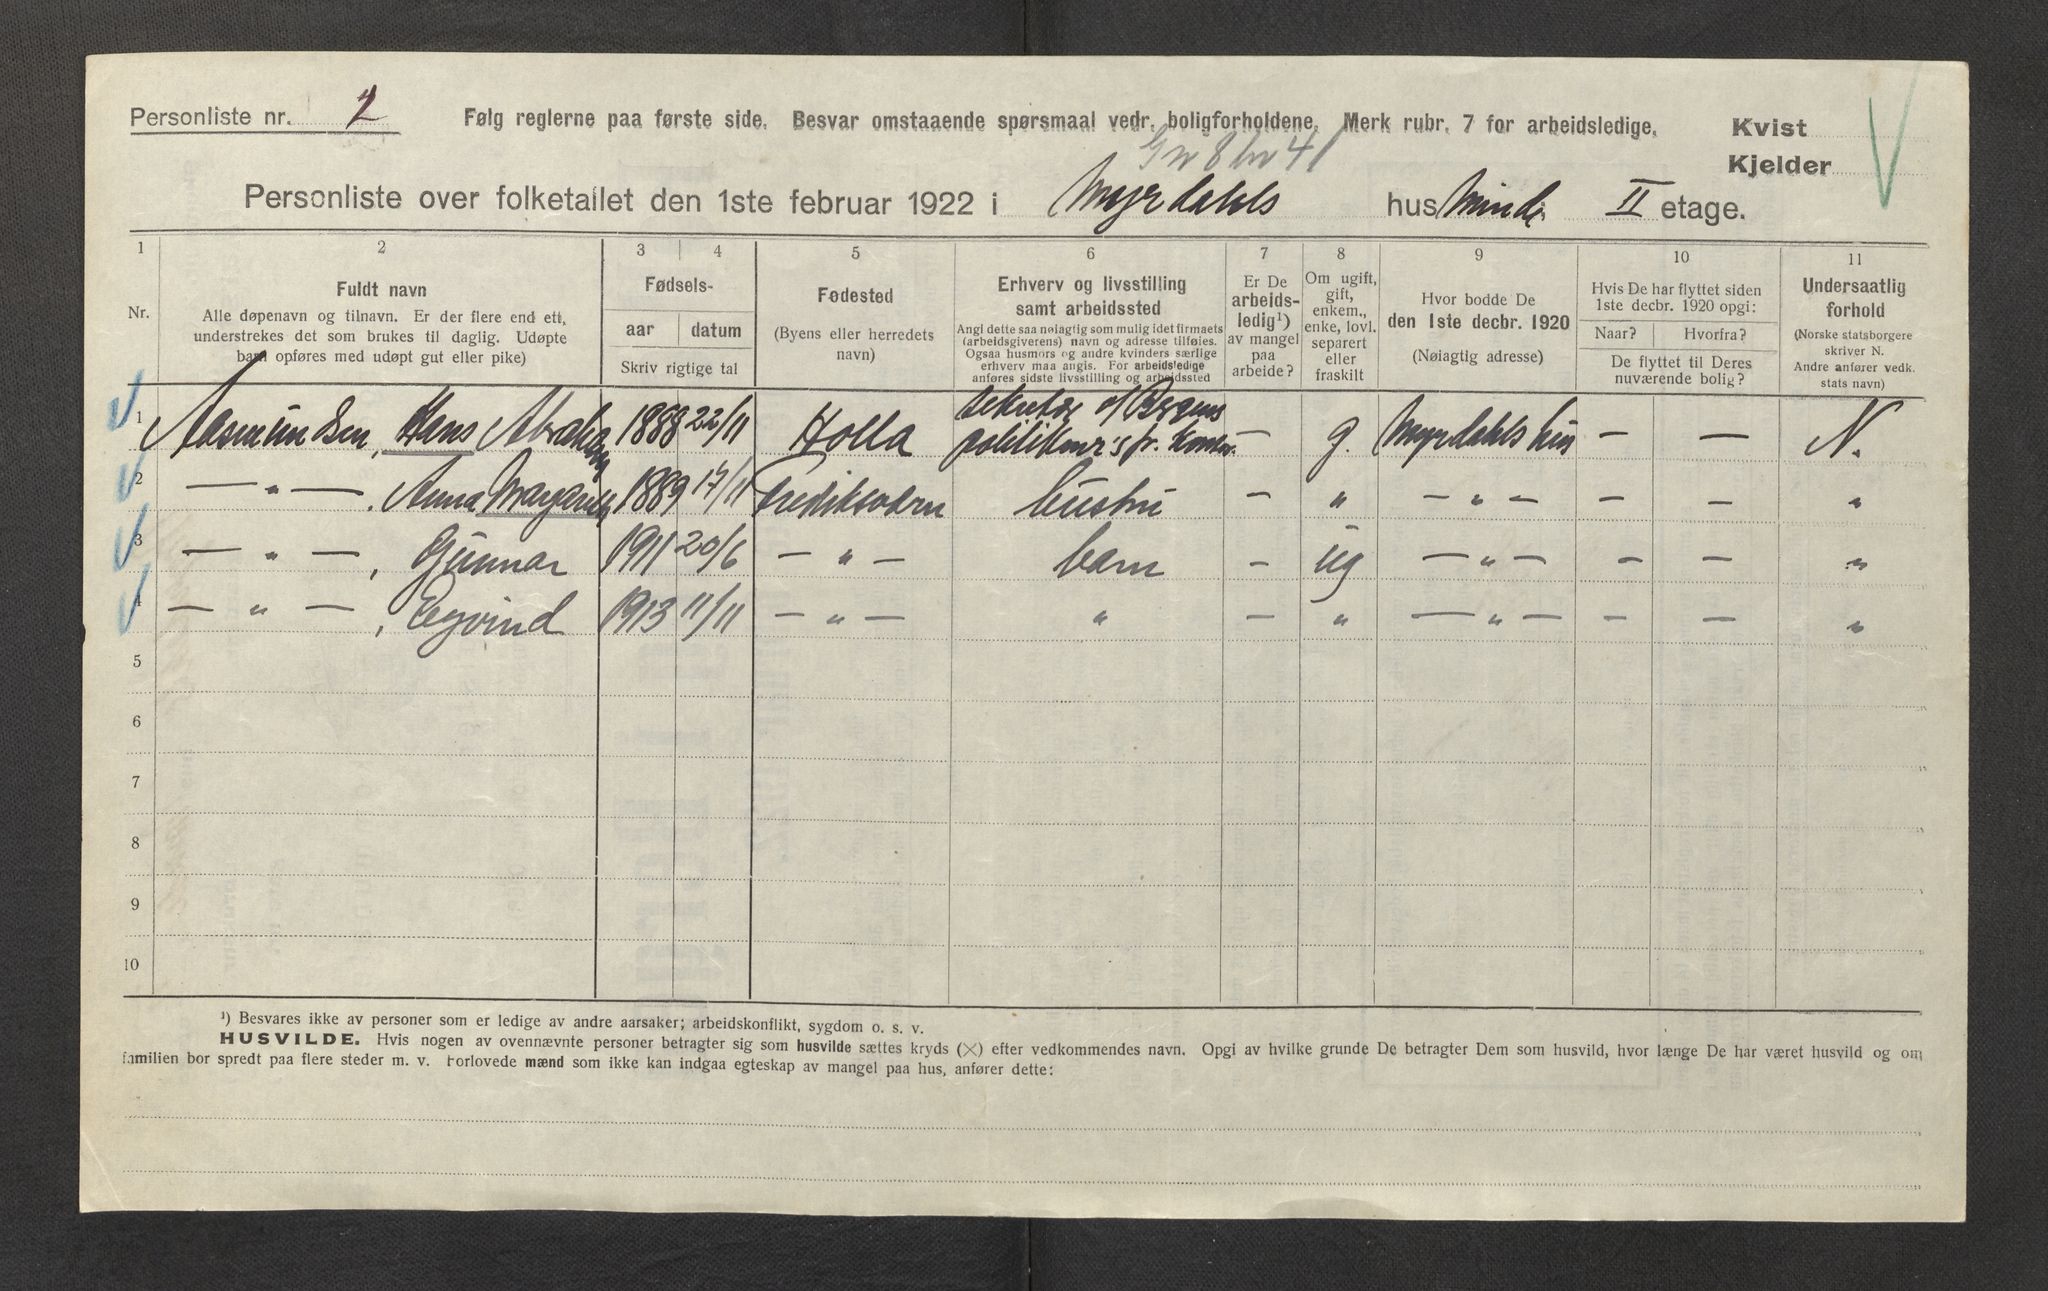 Personliste nr. 2 Følg reglerne paa første side. Besvar omstaaende spørsmaal vedr. boligforholdene. Merk rubr. 7 for arbeidsledige. Kvist
Gnr 8 bnr 41
Kjelder
Personliste over folketallet den 1ste februar 1922 i Myrdahls hus Minde II etage.
1 2 3 4 5 6 7 8 9 10 11
Nr.
Fuldt navn
Alle døpenavn og tilnavn. Er der flere end ett,
understrekes det som brukes til daglig. Udøpte
barn opføres med udøpt gut eller pike)
Fødsels-
aar datum
Skriv rigtige tal
Fødested
(Byens eller herredets
navn)
Erhverv og livsstilling
samt arbeidssted
Angi dette saa nøiagtig som mulig idet firmaets
(arbeidsgiverens) navn og adresse tilføies.
Ogsaa husmors og andre kvinders særlige
erhverv maa angis. For arbeidsledige
anføres sidste livsstilling og arbeidssted
Er De
arbeids-
ledig¹)
av mangel
paa
arbeide?
Om ugift,
gift,
enkem.,
enke, lovl.
separert
eller
fraskilt
Hvor bodde De
den 1ste decbr. 1920
(Nøiagtig adresse)
Hvis De har flyttet siden
1ste decbr. 1920 opgi:
Naar? Hvorfra?
De flyttet til Deres
nuværende bolig?
Undersaatlig
forhold
(Norske statsborgere
skriver N.
Andre anfører vedk.
stats navn)
1 Aasmundsen, Hans Abraham 1888 22/11 Holla Sekretær v/ Bergens
politikam's kontor. — g. Myrdahls hus — — N.
2 — " — , Anna Margarethe 1889 17/11 Fredriksværn hustru — " — " — — — "
3 — " — , Gunnar 1911 20/6 — " — barn — ug — " — — — "
4 — " — , Eyvind 1913 11/11 — " — " — " — " — — — "
5
6
7
8
9
10
¹) Besvares ikke av personer som er ledige av andre aarsaker; arbeidskonflikt, sygdom o. s. v.
HUSVILDE. Hvis nogen av ovennævnte personer betragter sig som husvilde sættes kryds (×) efter vedkommendes navn. Opgi av hvilke grunde De betragter Dem som husvild, hvor længe De har været husvild og om
familien bor spredt paa flere steder m. v. Forlovede mænd som ikke kan indgaa egteskap av mangel paa hus, anfører dette: